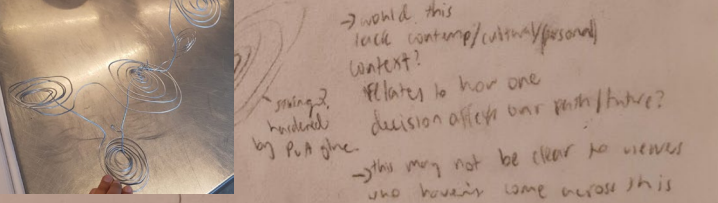 → would this
lack contemp/cultural/personal
context?
relates to how one
decision affects our path/future?
→ this may not be clear to viewers
who haven't come across this
string?
hardened
by PVA glue